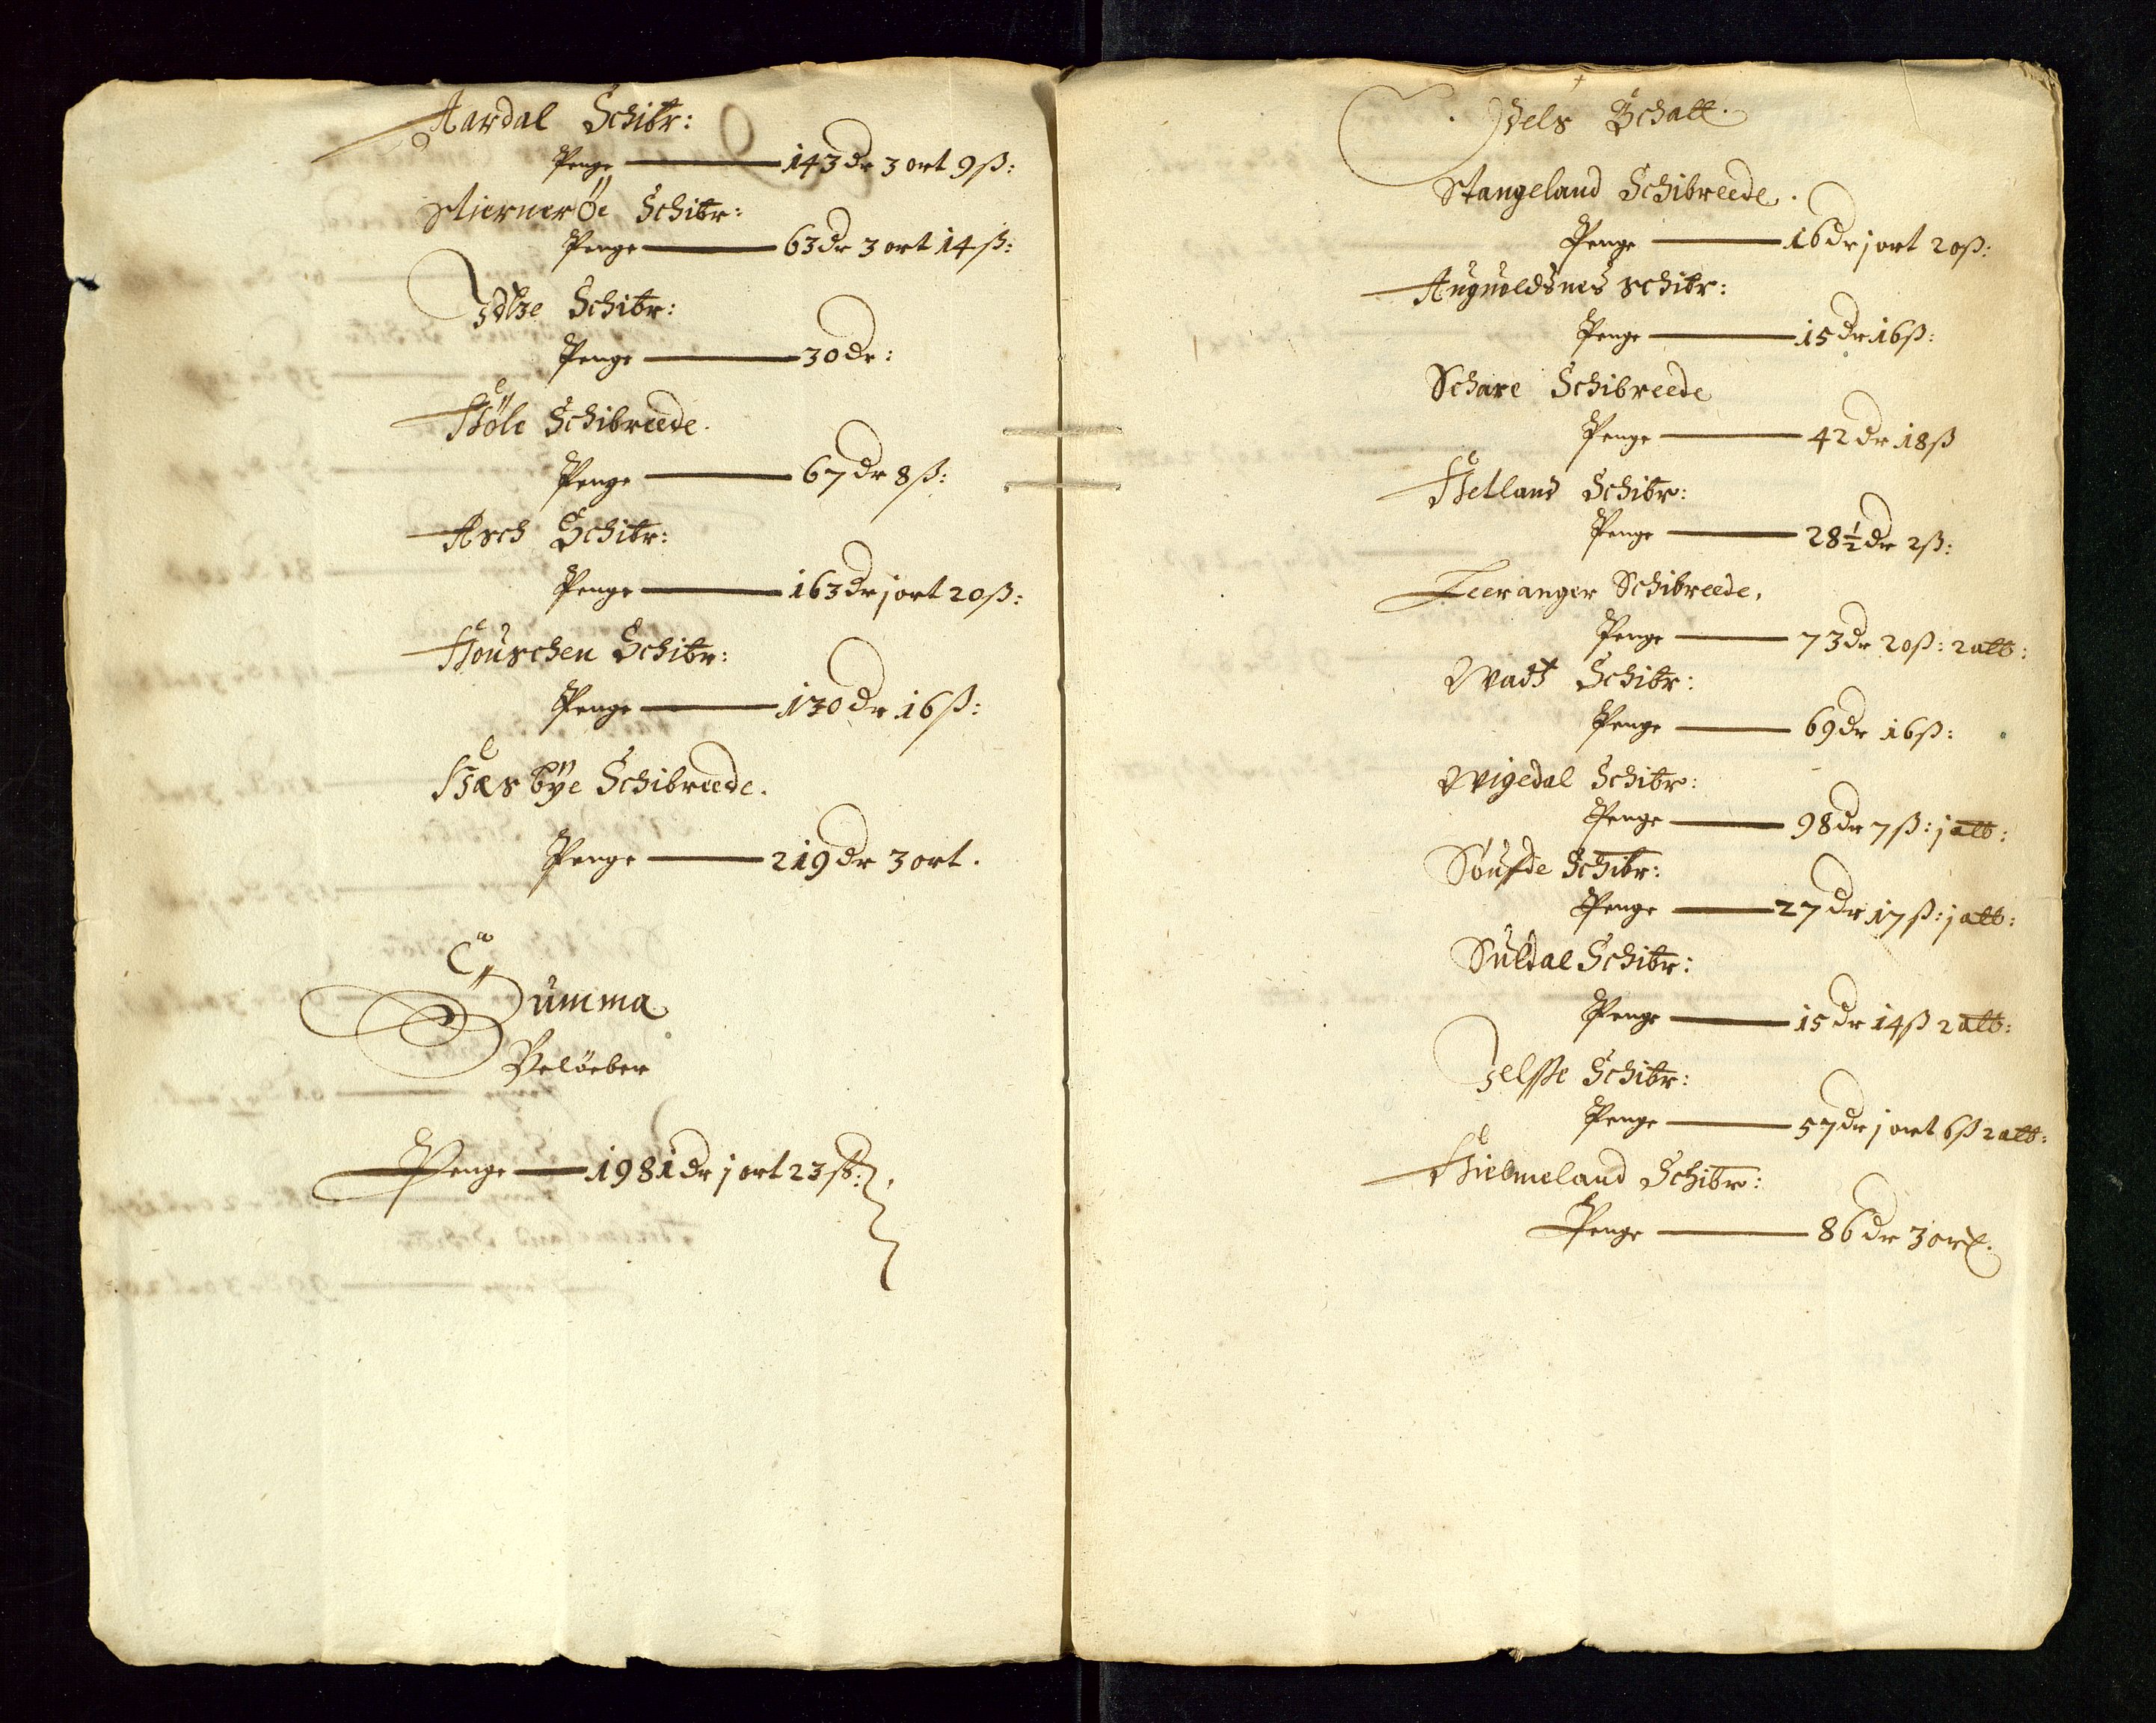 Aardal Schibr:
Penge 143 dr 3 ort 9 ß:
Stierneröe Schibr:
Penge 63 dr 3 ort 14 ß:
Idtze Schibr:
Penge 30 dr:
Höle Schibreede.
Penge 67 dr 8 ß:
Asch Schibr:
Penge 163 dr j ort 20 ß:
Houschen Schibr:
Penge 130 dr 16 ß:
Hæsbÿe Schibreede.
Penge 219 dr 3 ort.
Summa
Belöeber
Penge 1981 dr j ort 23 ß:
Schatt.
Stangeland Schibreede.
Penge 16 dr j ort 20 ß:
Auguoldsnes Schibr:
Penge 15 dr 16 ß:
Schare Schibreede
Penge 42 dr 18 ß
Hetland Schibr:
Penge 28 ½ dr 2 ß:
Leeranger Schibreede.
Penge 73 dr 20 ß: 2 alb:
Wadt Schibr:
Penge 69 dr 16 ß:
Wigedal Schibr:
Penge 98 dr 7 ß: j alb:
Soufde Schibr:
Penge 27 dr 17 ß: j alb:
Suldal Schibr:
Penge 15 dr 14 ß 2 alb:
Jelsse Schibr:
Penge 57 dr j ort 6 ß 2 alb:
Hielmeland Schibr:
Penge 86 dr 3 ort.